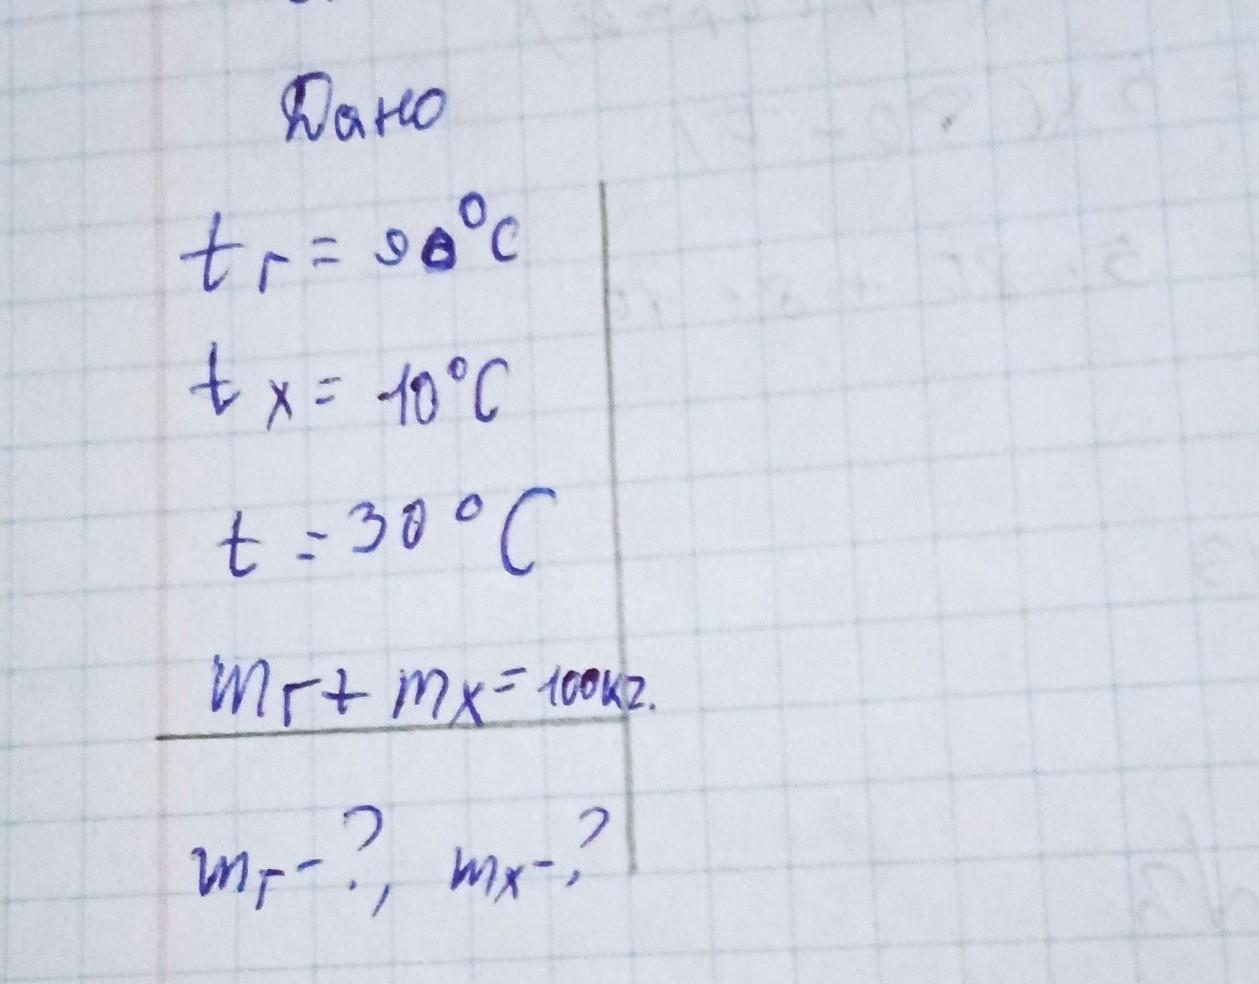 Дано
tг = 90°C
tх = 10°C
t = 30°C
mг + mх = 100кг.
mг - ?, mх - ?